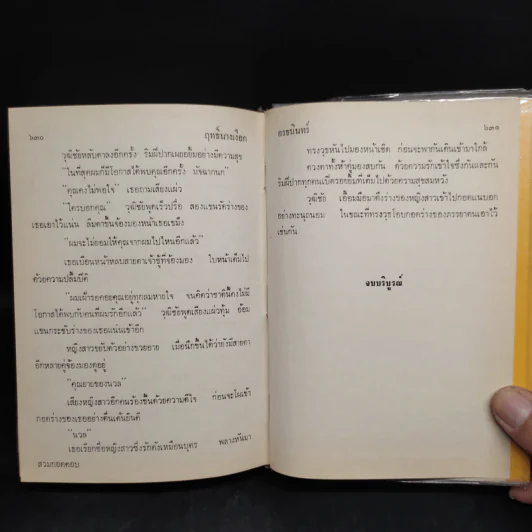 ๖๓๐ ฤทธิ์นางเงือก
วุฒิชัยหลับตาลงอีกครั้ง ริมฝีปากเผยอยิ้มอย่างมีความสุข
"ในที่สุดผมก็มีโอกาสได้พบคุณอีกครั้ง บัจฉานก"
"คุณคงไม่พอใจ" เธอถามเสียงแผ่ว
"ใครบอกคุณ" วุฒิชัยพูดเร็วปรื๋อ สองแขนรัดร่างของ
เธอเอาไว้แน่น ลืมตาขึ้นจ้องมองหน้าเธอเขม็ง
"ผมจะไม่ยอมให้คุณจากผมไปไหนอีกแล้ว"
เธอเบือนหน้าหลบสายตาเจ้าชู้ที่จ้องมอง ใบหน้าเต็มไป
ด้วยความปลื้มปีติ
"ผมเฝ้ารอคอยคุณอยู่ทุกลมหายใจ จนคิดว่าชาตินี้คงไม่มี
โอกาสได้พบกับคนที่ผมรักอีกแล้ว" วุฒิชัยพูดเสียงแผ่วทุ้ม อ้อม
แขนกระชับร่างของเธอแน่นเข้าอีก
หญิงสาวขยับตัวอย่างขวยอาย เมื่อนึกขึ้นได้ว่ายังมีสายตา
อีกหลายคู่จ้องมองดูอยู่
"คุณยายของนวล"
เสียงหญิงสาวอีกคนร้องขึ้นด้วยความดีใจ ก่อนจะโผเข้า
กอดร่างของเธออย่างตื่นเต้นยินดี
"นวล"
เธอเรียกชื่อหญิงสาวซึ่งรักดังเหมือนบุตร พลางหันมา
สวมกอดตอบ
อรชนินทร์ ๖๓๑
ทรงวุธหันไปมองหน้าเชิด ก่อนจะพากันเดินเข้ามาใกล้
ดวงตาทั้งห้าคู่มองสบกัน ด้วยความรักเข้าใจซึ่งกันและกัน
ริมฝีปากทุกคนเปิดรอยยิ้มที่เต็มไปด้วยความสุขสมหวัง
วุฒิชัย เอื้อมมือมาดึงร่างของหญิงสาวเข้าไปกอดแนบอก
อย่างทะนุถนอม ในขณะที่ทรงวุธโอบกอดร่างของภรรยาตนเอาไว้
เช่นกัน
จบบริบูรณ์